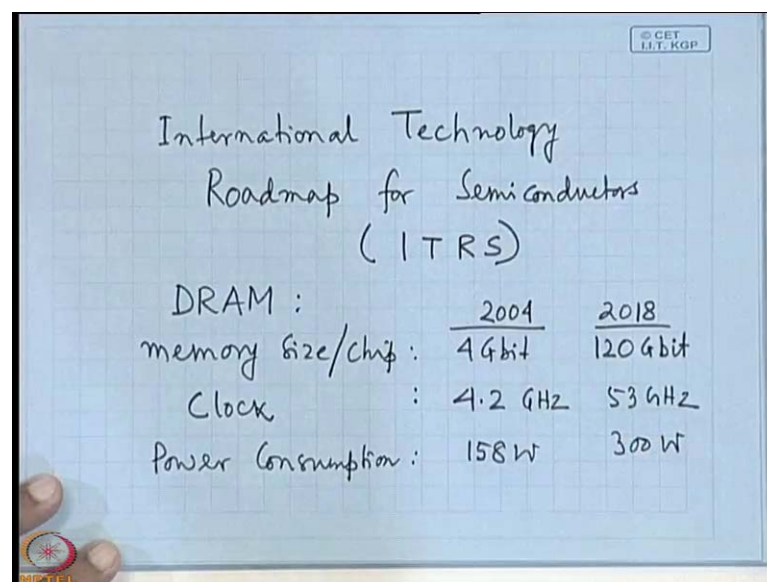 © CET
I.I.T. KGP
International Technology
Roadmap for Semiconductors
( ITRS)
DRAM :
2004 2018
memory size/chip : 4 Gbit 120 Gbit
Clock : 4.2 GHz 53 GHz
Power Consumption : 158 W 300 W
NPTEL